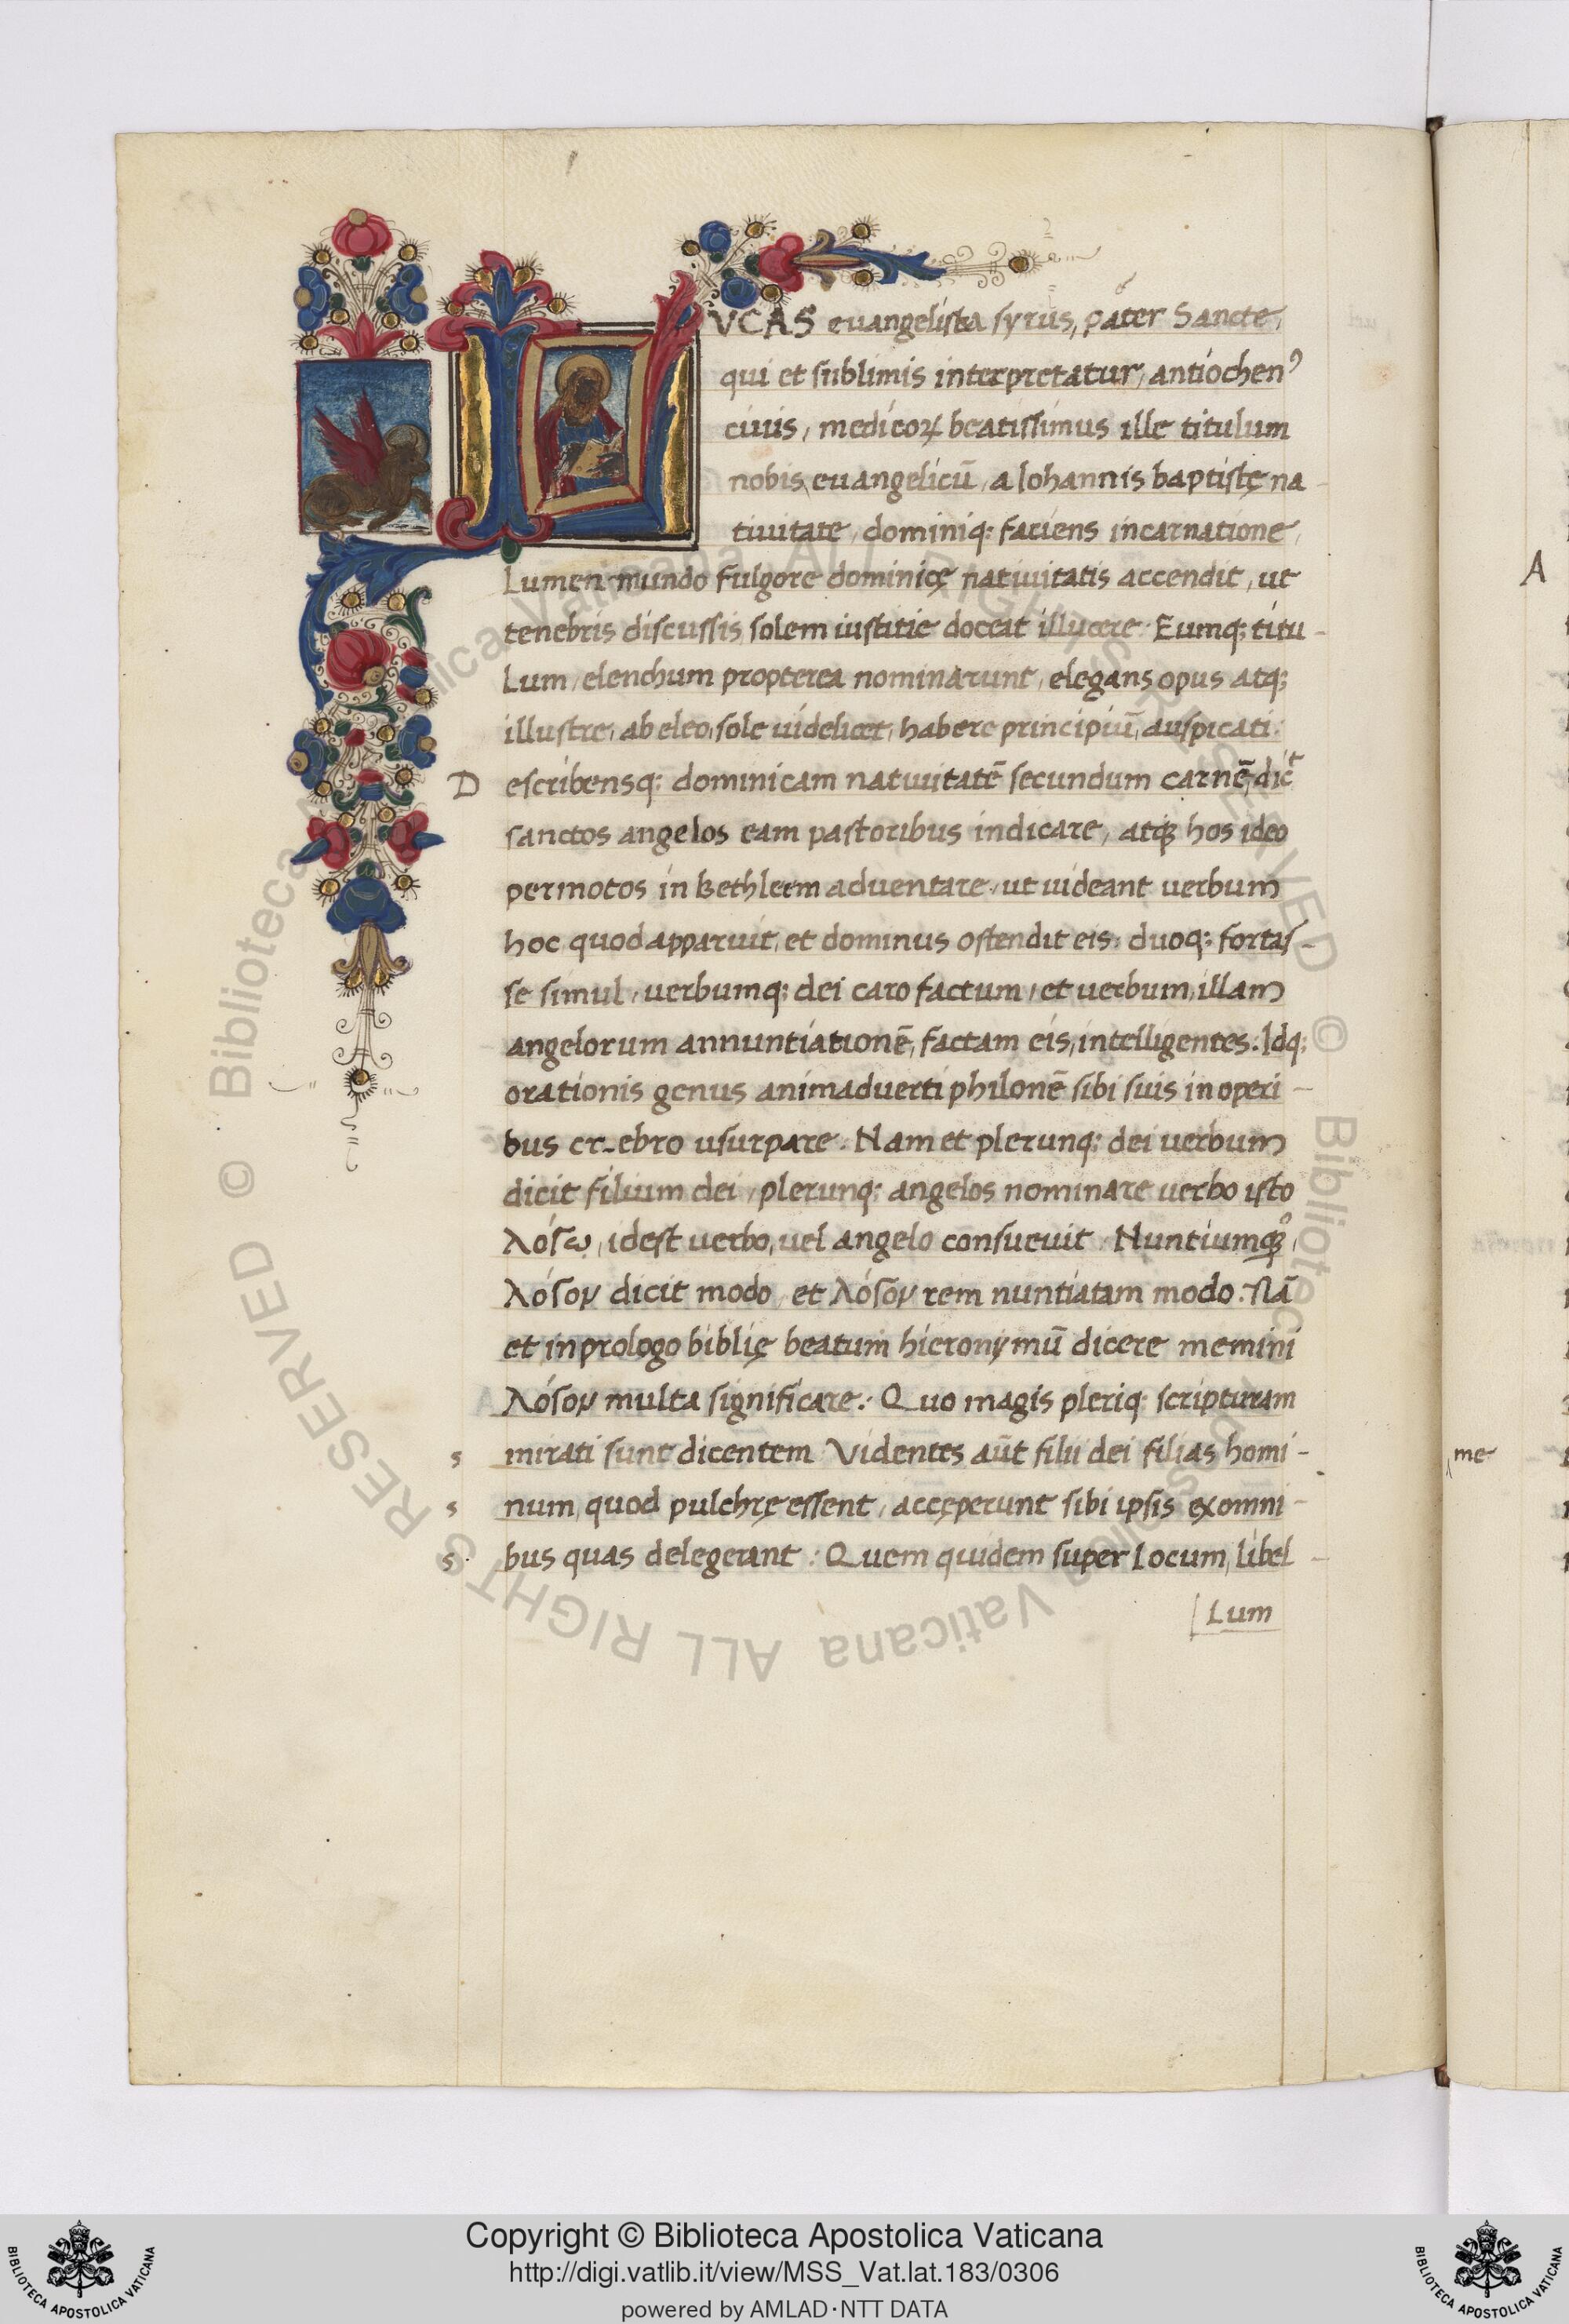 LVCAS euangelista syrus, pater Sancte,
qui et sublimis interpretatur, antiochenꝰ
ciuis, medicoꝝ beatissimus ille titulum
nobis euangelicū, a Iohannis baptistę na-
tiuitate, dominiq; faciens incarnatione,
Lumen mundo fulgore dominicę natiuitatis accendit, ut
tenebris discussis, solem iustitie doceat illucere. Eumq; titu-
Lum, elenchum propterea nominarunt, elegans opus atq;
illustre, ab eleo, sole uidelicet, habere principiū, auspicati:
Describensq; dominicam natiuitatē secundum carnē, dicit
sanctos angelos eam pastoribus indicare, atq; hos ideo
permotos in bethleem aduentare, ut uideant uerbum
hoc quod apparuit, et dominus ostendit eis: duoq; fortas-
se simul, uerbumq; dei caro factum, et uerbum, illam
angelorum annuntiationē, factam eis, intelligentes. Idq;
orationis genus animaduerti philonē sibi suis in operi-
bus cr-ebro usurpare. Nam et plerunq; dei uerbum
dicit filium dei, plerunq; angelos nominare uerbo isto
λόγῳ, idest uerbo, uel angelo consueuit. Nuntiumq;
λόγον dicit modo, et λόγον rem nuntiatam modo. Nā
et in prologo biblię beatum hieronymū dicere memini
λόγον multa significare. Quo magis pleriq; scripturam
s mirati sunt dicentem Videntes aūt filii dei filias homi-
s num, quod pulchrę essent, accęperunt sibi ipsis ex omni-
s bus quas delegerant: Quem quidem super Locum, libel-
Lum
A
me
© Biblioteca Apostolica Vaticana ALL RIGHTS RESERVED
© Biblioteca Apostolica Vaticana ALL RIGHTS RESERVED
Copyright © Biblioteca Apostolica Vaticana
http://digi.vatlib.it/view/MSS_Vat.lat.183/0306
powered by AMLAD·NTT DATA
BIBLIOTECA APOSTOLICA VATICANA
BIBLIOTECA APOSTOLICA VATICANA